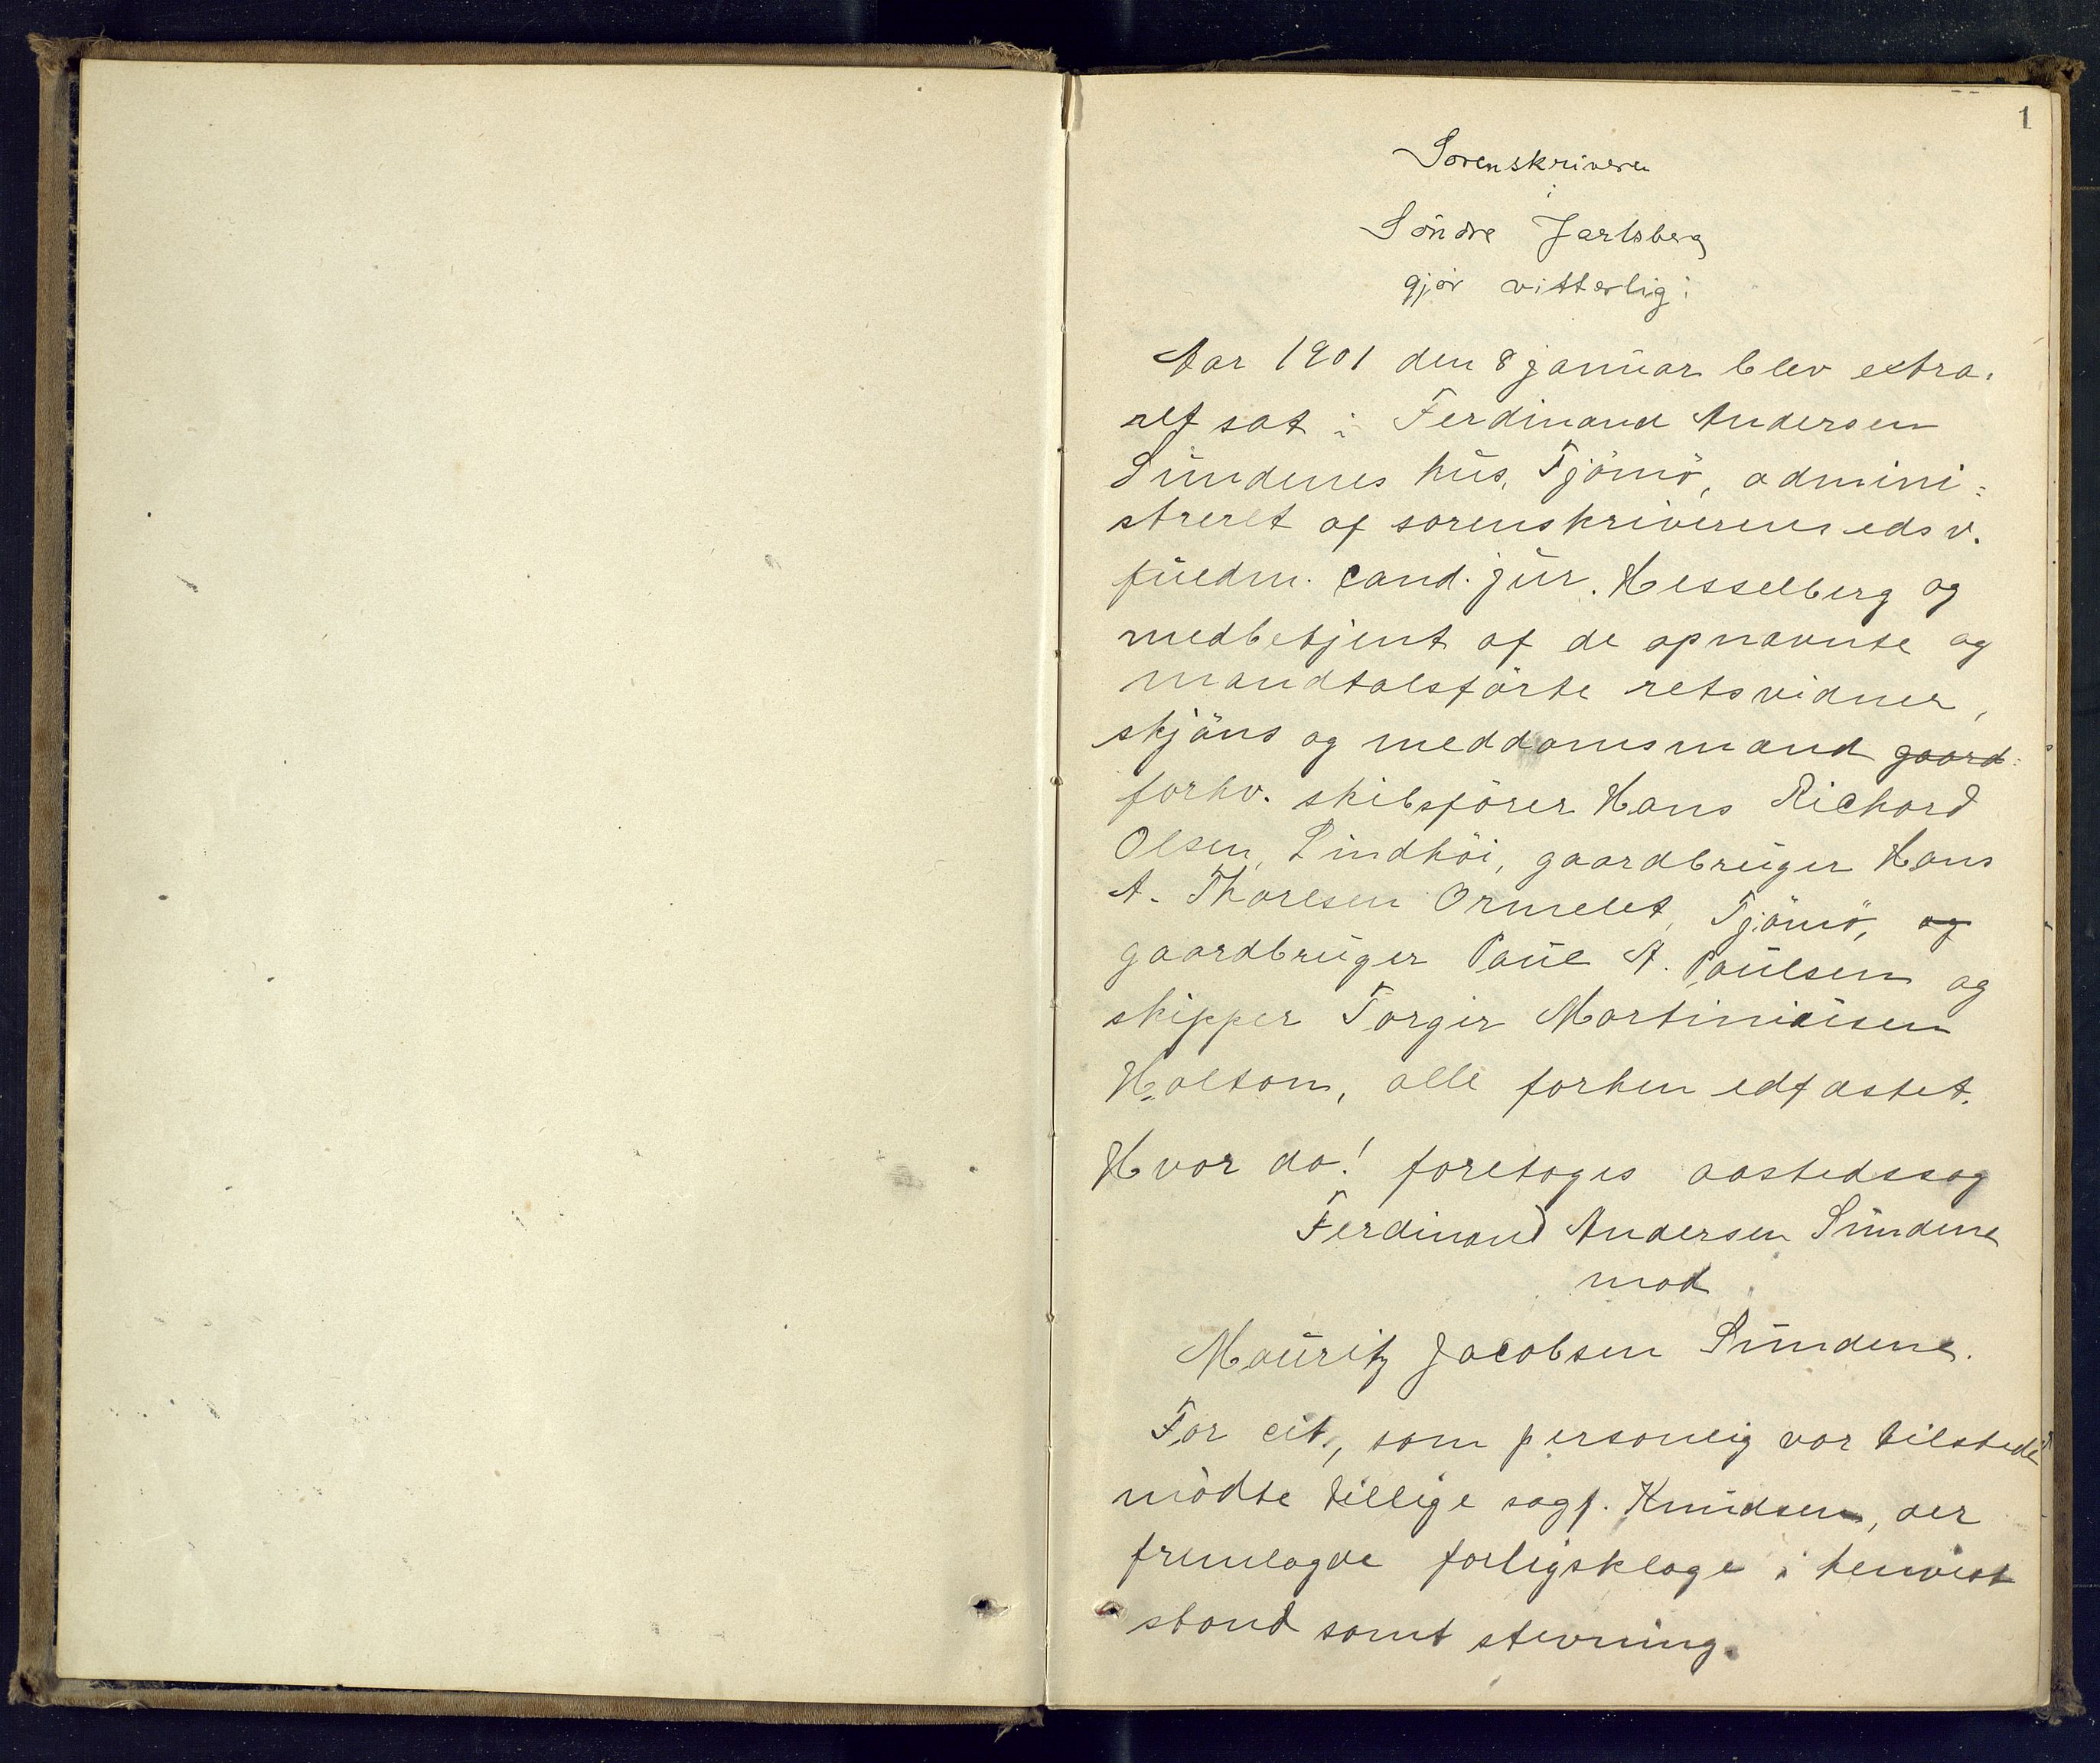 1
Sorenskriveren
i
Söndre Jarlsberg
gjör vitterlig:
Aar 1901 den 8 januar blev extra-
ret sat i Ferdinand Andersen
Sundenes hus, Tjömö, admini-
streret af sorenskriverens edsv.
fuldm. cand. jur. Hesselberg og
medbetjent af de opnævnte og
mandtalsförte retsvidner,
skjöns og meddomsmænd gaard-
forhv. skibsförer Hans Richard
Olsen, Lindhöi, gaardbruger Hans
A. Thorlsen Ormelet, Tjömö, og
gaardbruger Paul A. Paulsen og
skipper Torgir Martiniusen
Holtan, alle forhen edfæstet.
Hvor da! foretoges aastedssag
Ferdinand Andersen Sundene
mod
Mauritz Jacobsen Sundene.
For cit., som personlig var tilstede
mödte tillige sagf. Knudsen, der
fremlagde forligsklage i henvist
stand samt stevning.